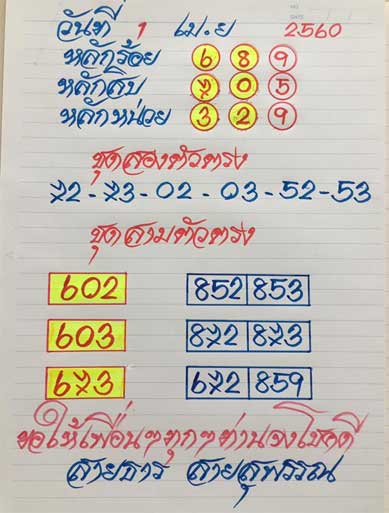 วันที่ 1 เม.ย 2560
หลักร้อย 6 8 9
หลักสิบ 7 0 5
หลักหน่วย 3 2 9
ชุดสองตัวตรง
72-73-02-03-52-53
ชุดสามตัวตรง
602 852 853
603 872 873
673 672 859
ขอให้เพื่อนๆทุกๆท่านจงโชคดี
สายธาร สายสุพรรณ